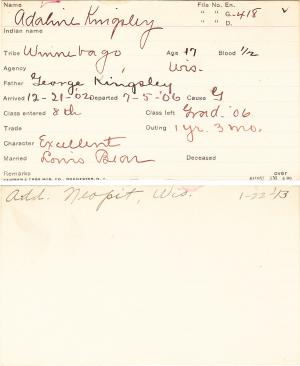 Name Adaline Kingsley File No. En.
Indian name " " G-418
" " D.
Tribe Winnebago Age 17 Blood 1/2
Agency Wis.
Father George Kingsley
Arrived 12-21-'02 Departed 7-5-'06 Cause G
Class entered 8th Class left Grad. '06
Trade Outing 1 yr. 3 mo.
Character Excellent
Married Louis Bear Deceased
Remarks over
Add. Neopit, Wis. 1-22-13